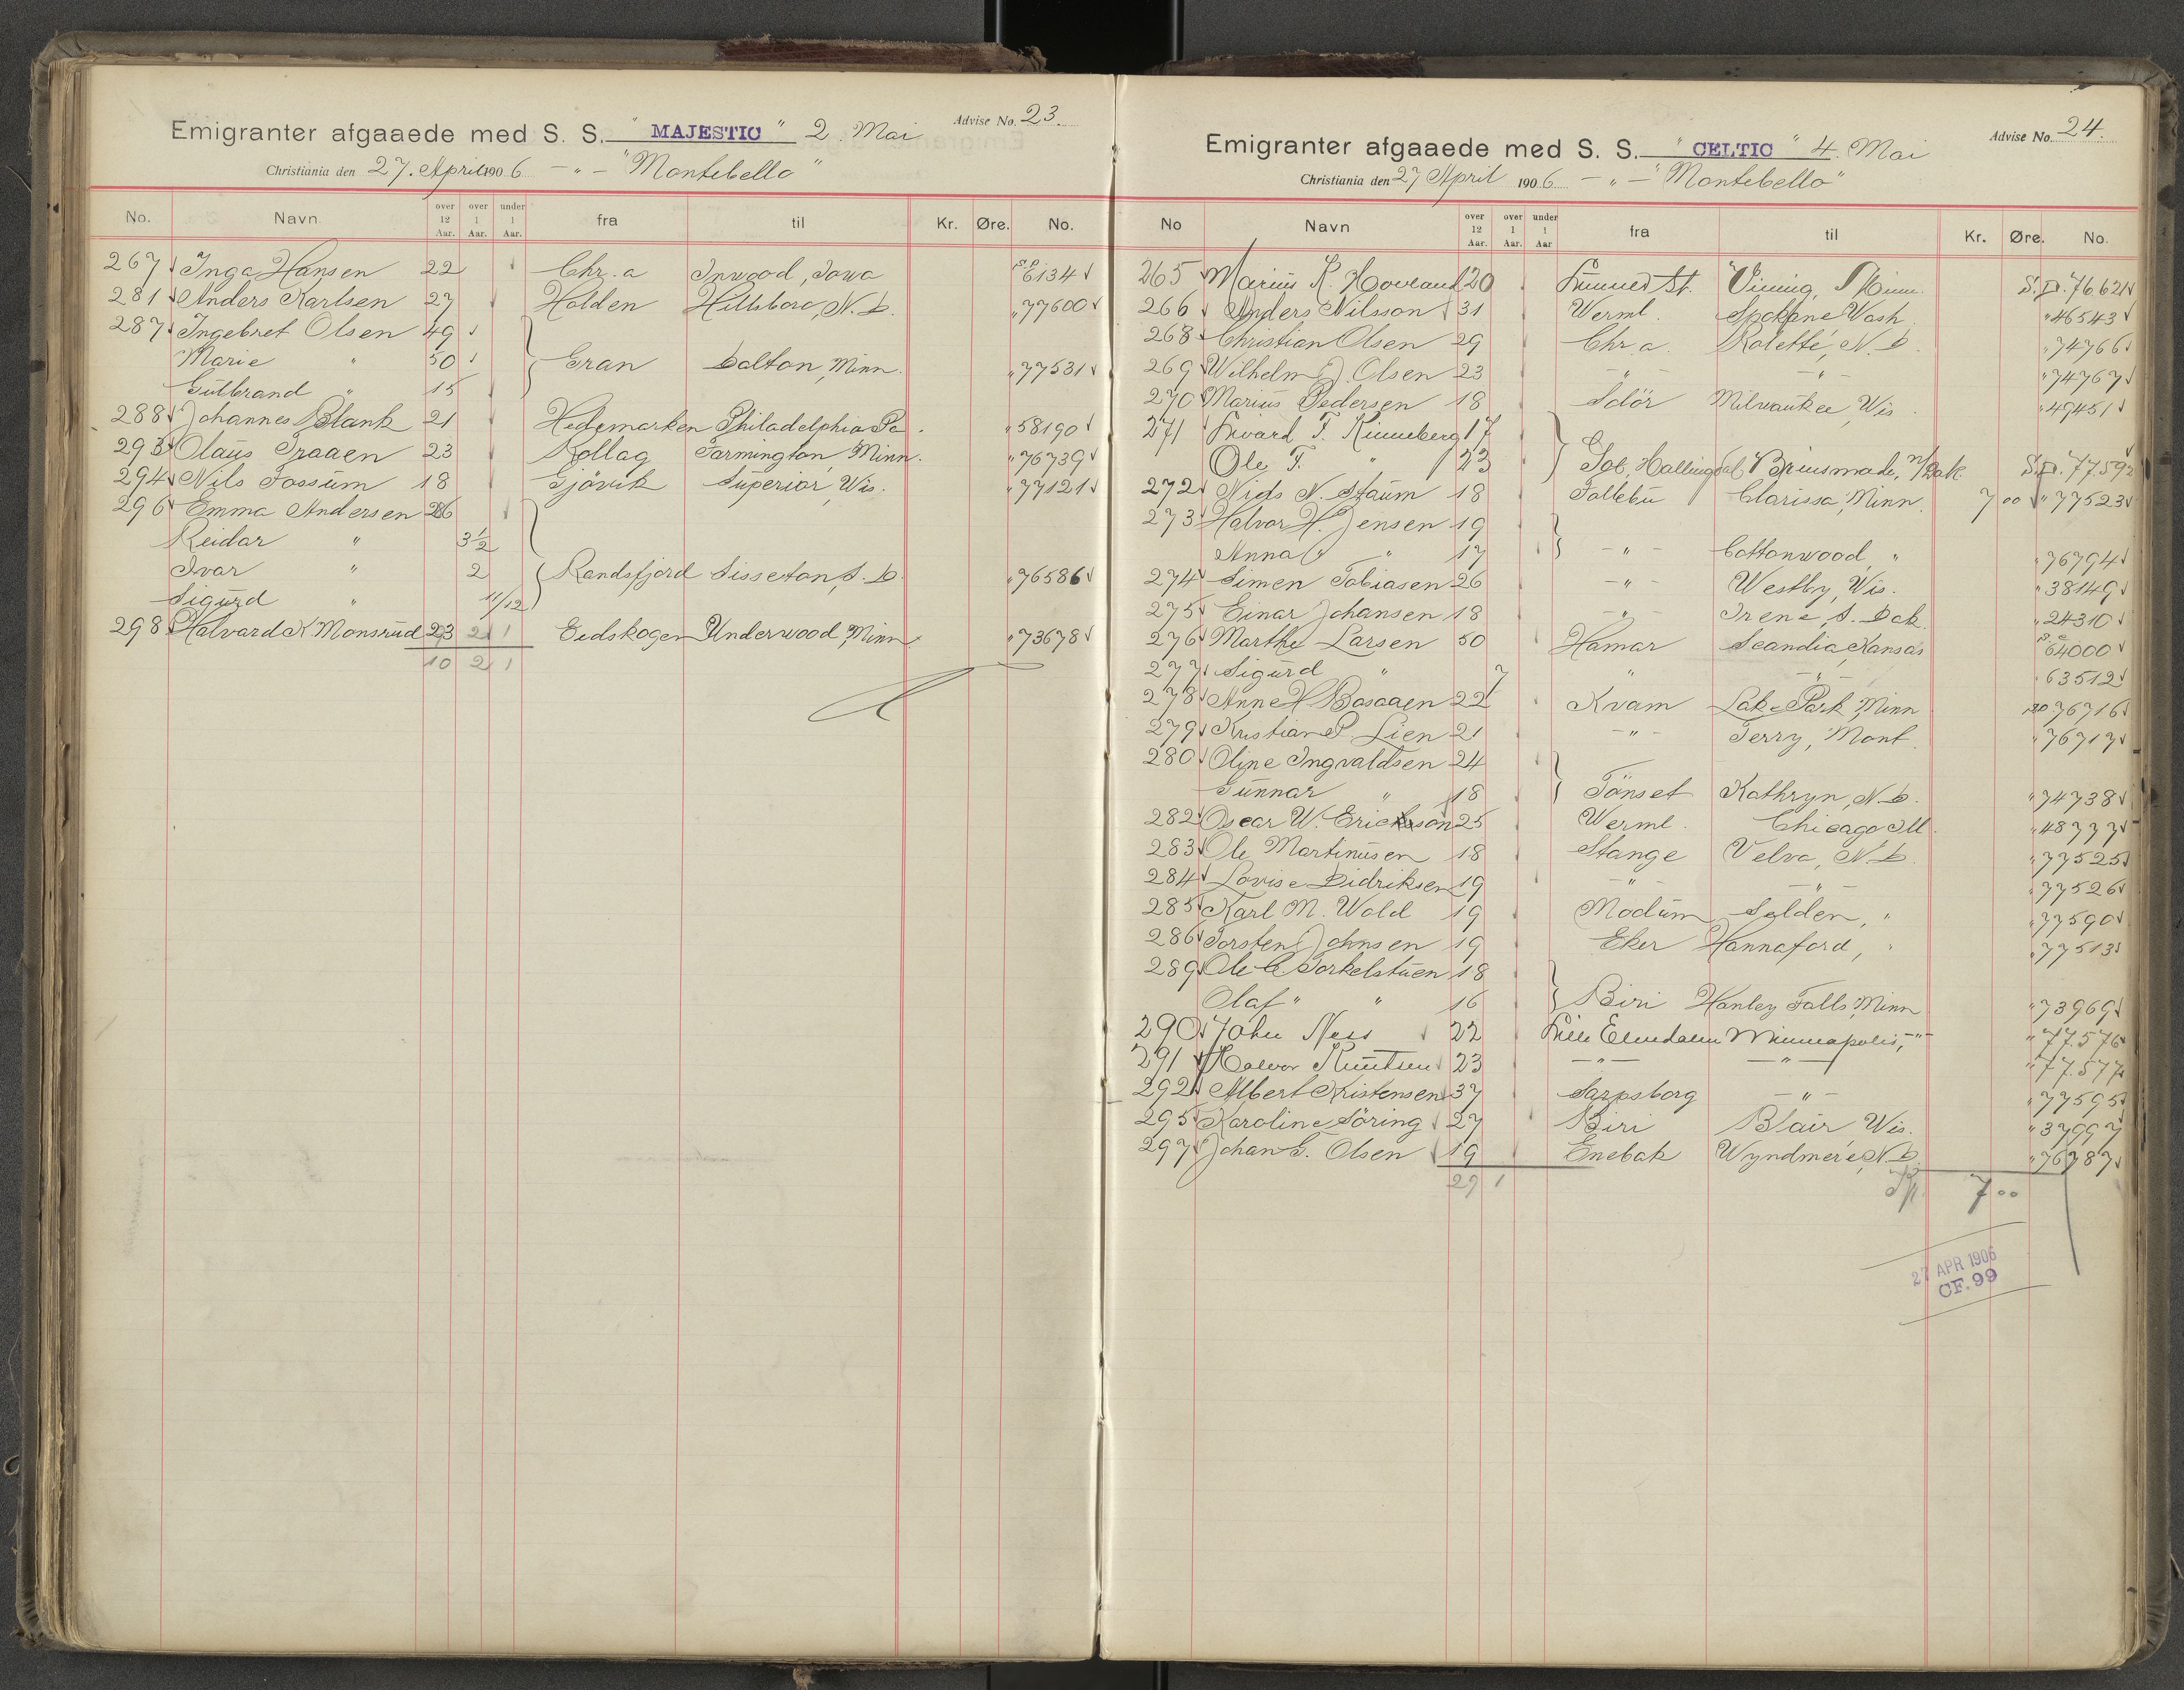 Emigranter afgaaede med S. S. "MAJESTIC" 2. Mai Advise No. 23.
Christiania den 27. April 1906 - " - "Montebello"
No. Navn over 12 Aar. over 1 Aar. under 1 Aar. fra til Kr. Øre. No.
267 Inga Hansen 22 Chr.a Inwood, Iowa S.P. 6134
281 Anders Karlsen 27 Holden Hillsboro, N. D. " 77600
287 Ingebret Olsen 49
Marie " 50 Gran Dalton, Minn. " 77531
Gulbrand " 15
288 Johannes Blank 21 Hedemarken Philadelphia Pa. " 58190
293 Olaus Traaen 23 Rollag Farmington, Minn. " 76739
294 Nils Fossum 18 Gjövik Superior, Wis. " 77121
296 Emma Andersen 26
Reidar " 3½
Ivar " 2 Randsfjord Sisseton, S. D. " 76586
Sigurd " 11/12
298 Halvard K Monsrud 23 2 1 Eidskogen Underwood, Minn. " 73678
10 2 1
Emigranter afgaaede med S. S. "CELTIC" 4. Mai Advise No. 24.
Christiania den 27 April 1906 - " - "Montebello"
No Navn over 12 Aar. over 1 Aar. under 1 Aar fra til Kr. Øre. No.
265 Marius K. Hovland 20 Vining, Minn. S.P. 76621
266 Anders Nilsson 31 Werml. Spokane Wash. " 46543
268 Christian Olsen 29 Chr.a. Rolette, N. D. " 74766
269 Wilhelm J. Olsen 23 - " - - " - " 74767
270 Marius Pedersen 18 Solör Milvaukee, Wis. " 49451
271 T. Kinneberg 17
Ole T. " 23 Hallingdal N/Dak. S.P. 77.592
272 N. Staum 18 Follebu Clarissa, Minn. 7 00 " 77523
273 Halvor H. Jensen 19
Anna " 17 - " - Cottonwood, " " 76794
274 Simen Tobiasen 26 - " - Westby, Wis. " 38149
275 Einar Johansen 18 - " - Irene, S. Dak. " 24310
276 Marthe Larsen 50 Hamar Scandia, Kansas 64000
277 Sigurd " 7 " - " - " 63512
278 Anne H Bosaaen 22 Kvam Lake Park, Minn S.P. 76716
279 Kristian P. Lien 21 - " - Terry, Mont. " 76717
280 Oline Ingvaldsen 24
Gunnar " 18 Tönset Kathryn, N. D. " 74738
282 Oscar W. Erickson 25 Werml. Chicago Ill. " 48777
283 Ole Martinusen 18 Stange Velva, N. D. " 77525
284 Lovise Didriksen 19 - " - - " - " 77526
285 Karl M. Wold 19 Modum Selden, " " 77590
286 Torsten Johnsen 19 Eker Hannaford, " " 77513
289 Ole C. Torkelstuen 18
Olaf " " 16 Biri Hanley Falls, Minn " 73969
290 John Ness 22 Lille Elvedalen Minneapolis, - " - " 77.576
291 Halvor Knutsen 23 - " - - " - " 77.577
292 Albert Kristensen 37 Sarpsborg - " - " 77595
295 Karoline Söring 27 Biri Blair Wis. " 37997
297 Johan G. Olsen 19 Enebak Wyndmere, N. D. " 76787
29 1 7 00
27 APR 1906
CF. 99